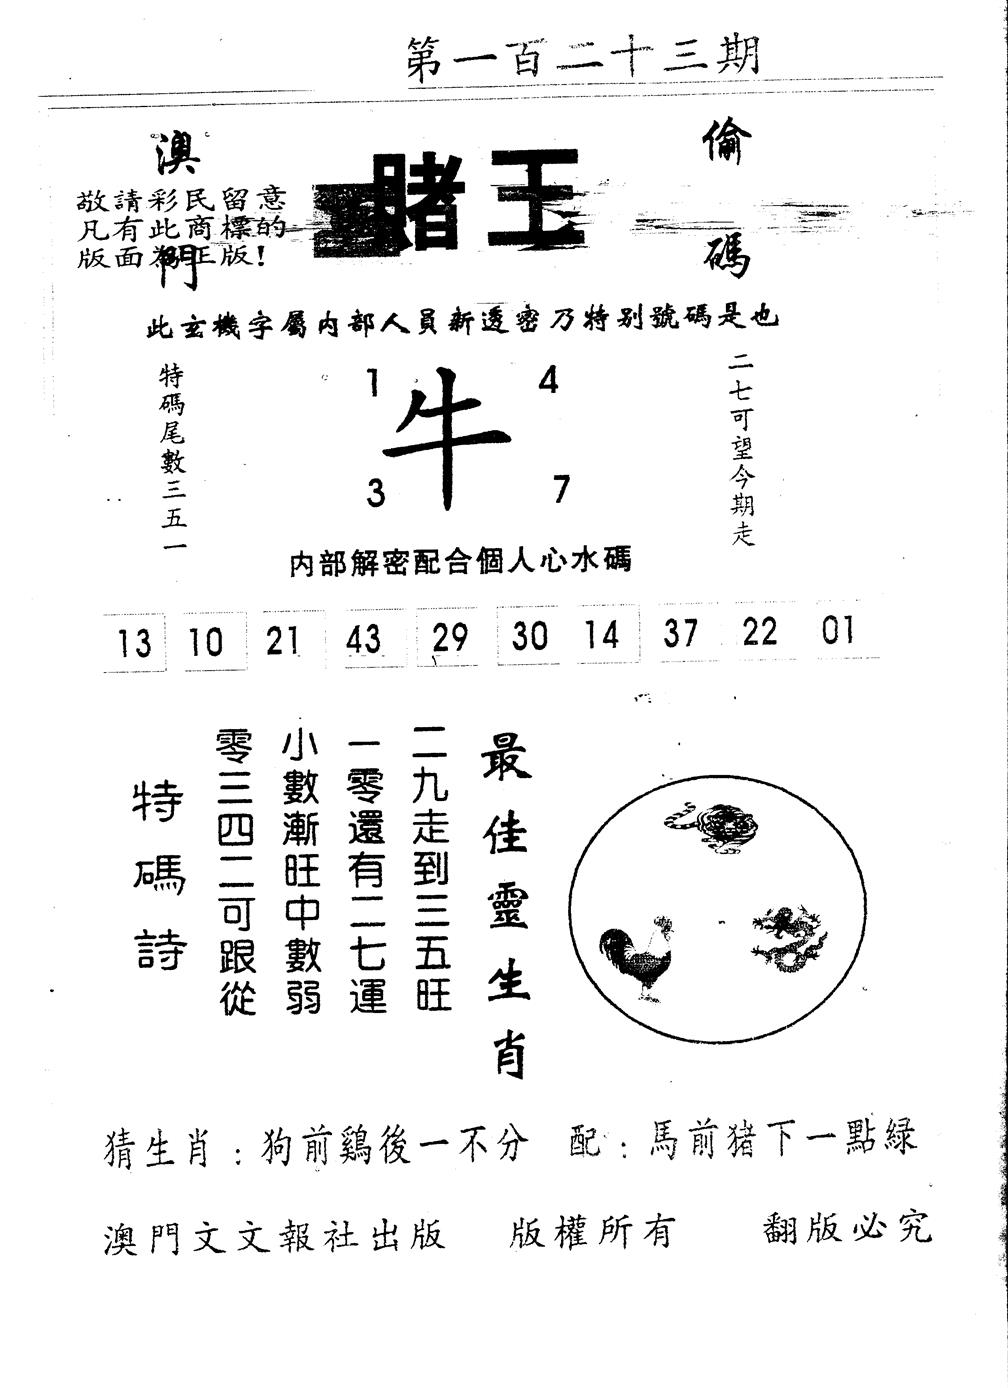 第一百二十三期
澳門
賭王
倫碼
敬請彩民留意
凡有此商標的
版面為正版!
此玄機字屬內部人員新透密乃特別號碼是也
特碼尾數三五一
1 4
牛
3 7
二七可望今期走
內部解密配合個人心水碼
13 10 21 43 29 30 14 37 22 01
最佳靈生肖
二九走到三五旺
一零還有二七運
小數漸旺中數弱
零三四二可跟從
特碼詩
猜生肖:狗前鷄後一不分 配:馬前猪下一點緑
澳門文文報社出版 版權所有 翻版必究